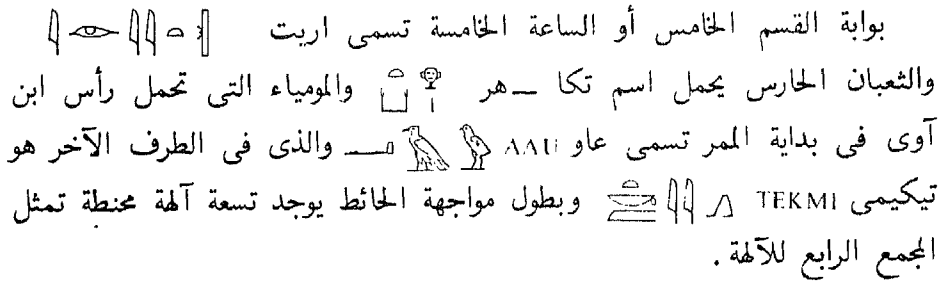 بوابة القسم الخامس أو الساعة الخامسة تسمى اريت
والثعبان الحارس يحمل اسم تكا ـهر والمومياء التى تحمل رأس ابن
آوى فى بداية الممر تسمى عاو AAU والذى فى الطرف الآخر هو
تيكيمى TEKMI وبطول مواجهة الحائط يوجد تسعة آلهة محنطة تمثل
المجمع الرابع للآلهة .